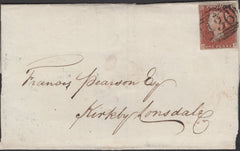 Francis Pearson Esq
Kirkby Lonsdale